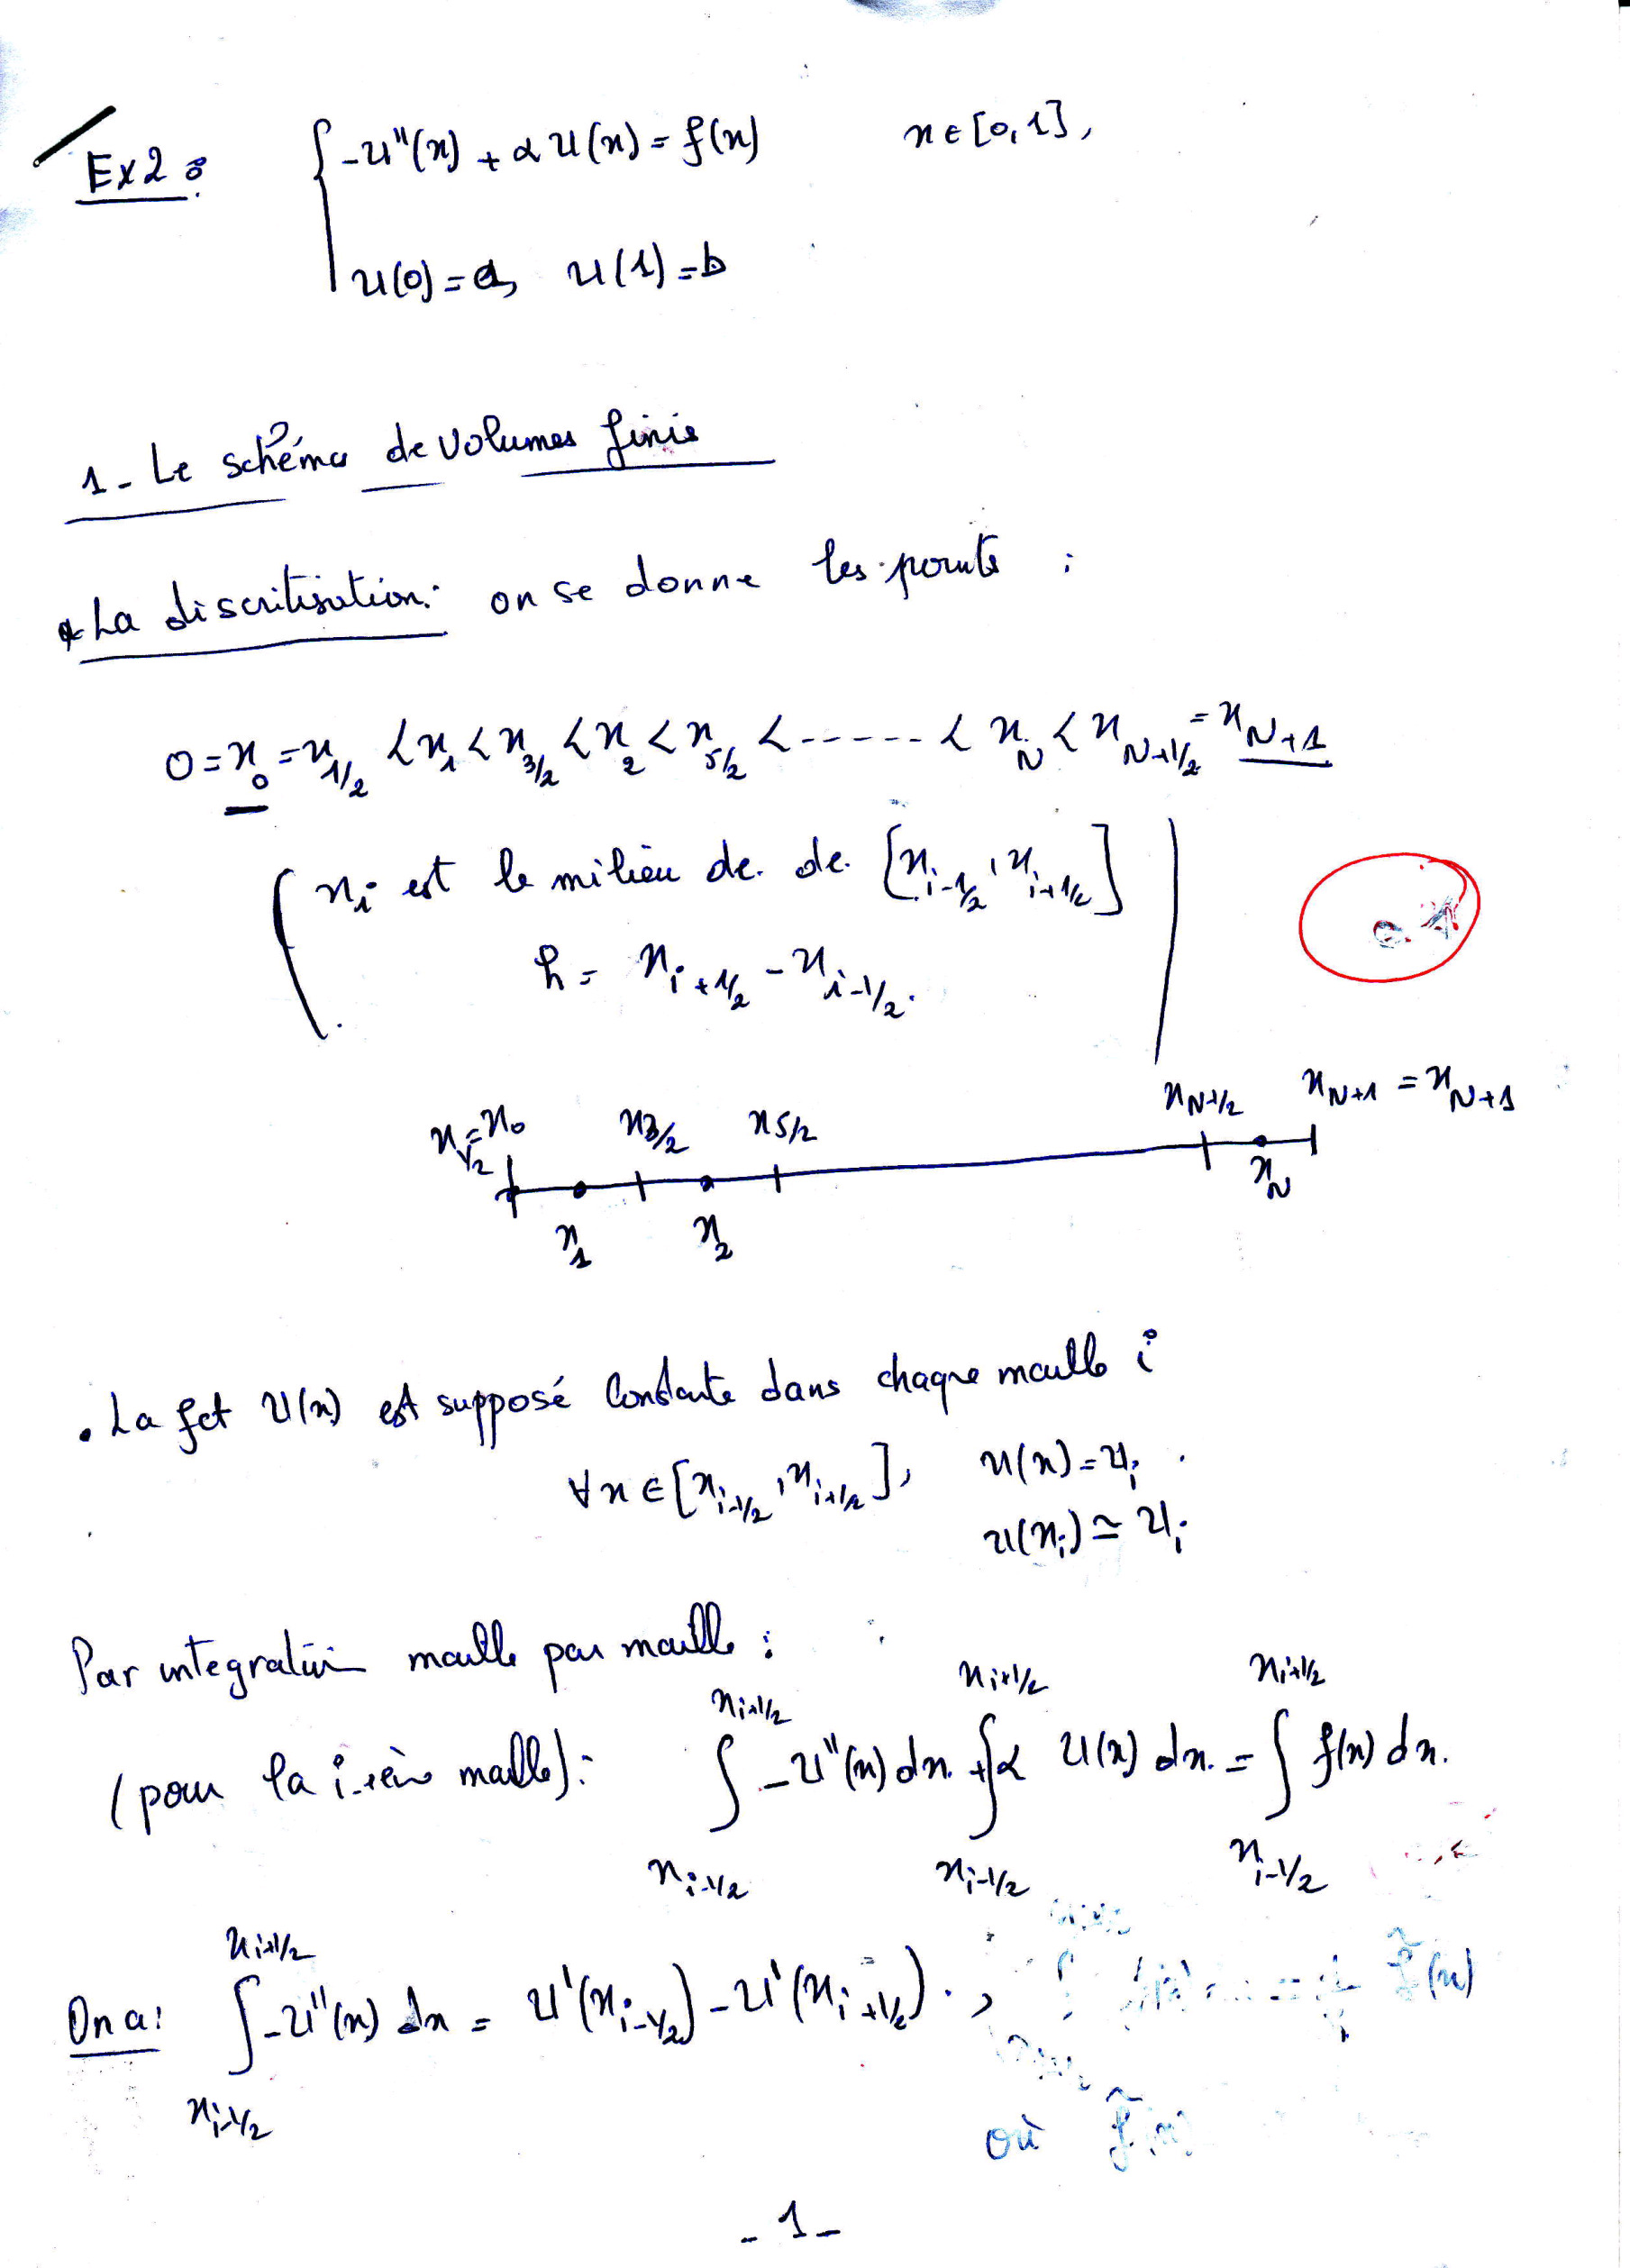 Ex2 : { -u''(x) + α u(x) = f(x)   x ∈ [0,1],
u(0) = a, u(1) = b
1- Le schéma de volumes finis
* La discritisation: on se donne les points :
0 = x_0 = x_{1/2} < x_1 < x_{3/2} < x_2 < x_{5/2} < ------ < x_N < x_{N+1/2} = x_{N+1}
( x_i est le milieu de. de. [x_{i-1/2}, x_{i+1/2}]
h = x_{i+1/2} - x_{i-1/2}.
x_{1/2} = x_0   x_{3/2}   x_{5/2}   x_{N+1/2}   x_{N+1} = x_{N+1}
x_1   x_2   x_N
. La fct u(x) est supposé Constante dans chaque maille i
∀x ∈ [x_{i-1/2}, x_{i+1/2}], u(x) = u_i .
u(x_i) ≃ u_i
Par integration maille par maille :
(pour la i-ième maille): ∫_{x_{i-1/2}}^{x_{i+1/2}} -u''(x) dx + ∫_{x_{i-1/2}}^{x_{i+1/2}} α u(x) dx. = ∫_{x_{i-1/2}}^{x_{i+1/2}} f(x) dx.
On a: ∫_{x_{i-1/2}}^{x_{i+1/2}} -u''(x) dx = u'(x_{i-1/2}) - u'(x_{i+1/2}) . ,
où
- 1 -